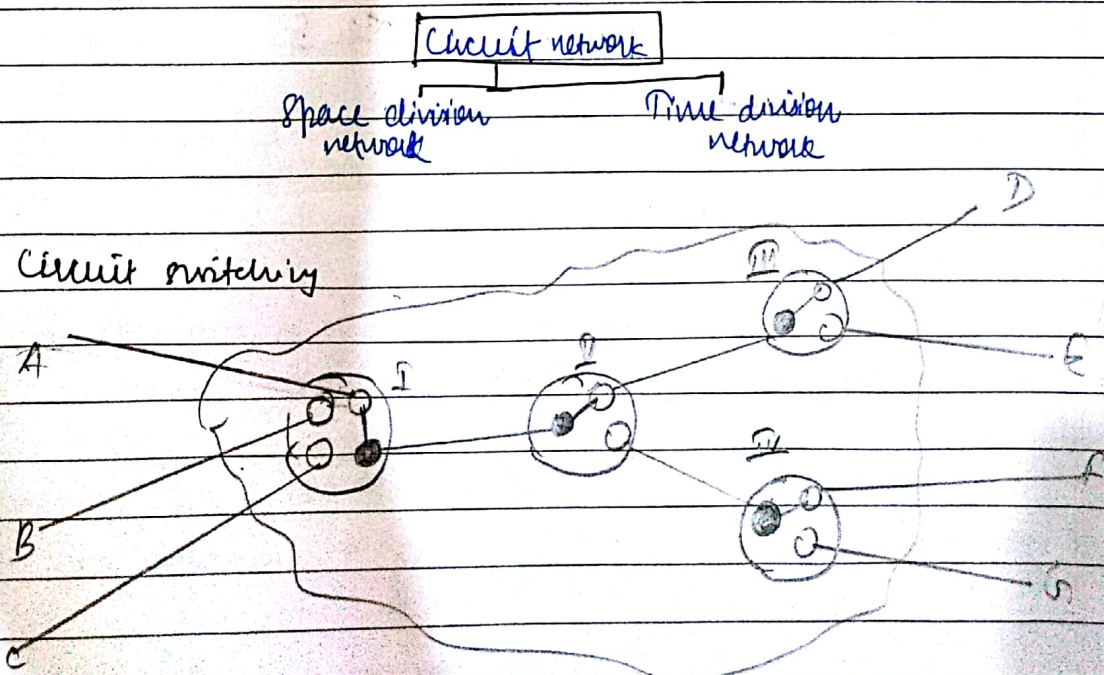 Circuit network
Space division
network
Time division
network
Circuit switching
A
B
C
D
E
F
I
II
III
IV